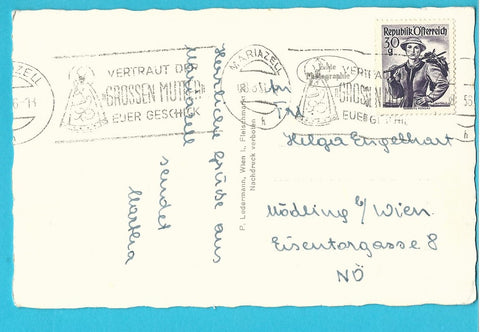 MARIAZELL
VERTRAUT DER
"GROSSEN MUTTER"
EUER GESCHICK
Herzliche Grüße aus
Mariazell
sendet
Martha
P. Ledermann, Wien I., Fleischmarkt
Nachdruck verboten
MARIAZELL
Echte
Photographie
VERTRAUT
"GROSSEN M
EUER GE CHICK
Republik Österreich
30
g
An
Helga Engelhart
Mödling b/Wien
Eisentorgasse 8
NÖ